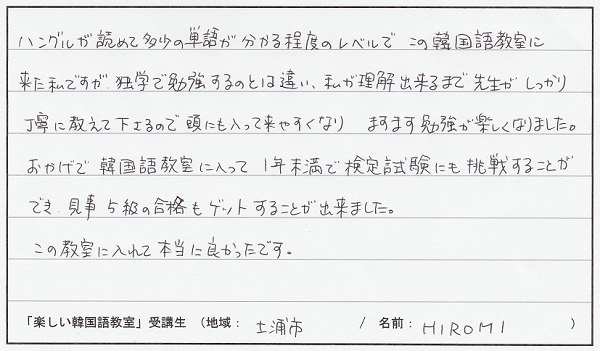 ハングルが読めて多少の単語が分かる程度のレベルで この韓国語教室に
来た私ですが、独学で勉強するのとは違い、私が理解出来るまで先生が しっかり
丁寧に教えて下さるので 頭にも入って来やすくなり ますます勉強が楽しくなりました。
おかげで 韓国語教室に入って 1年未満で検定試験にも 挑戦することが
でき、見事 5級の合格もゲットすることが出来ました。
この教室に入れて本当に良かったです。
「楽しい韓国語教室」受講生 （地域： 土浦市 / 名前： HIROMI ）